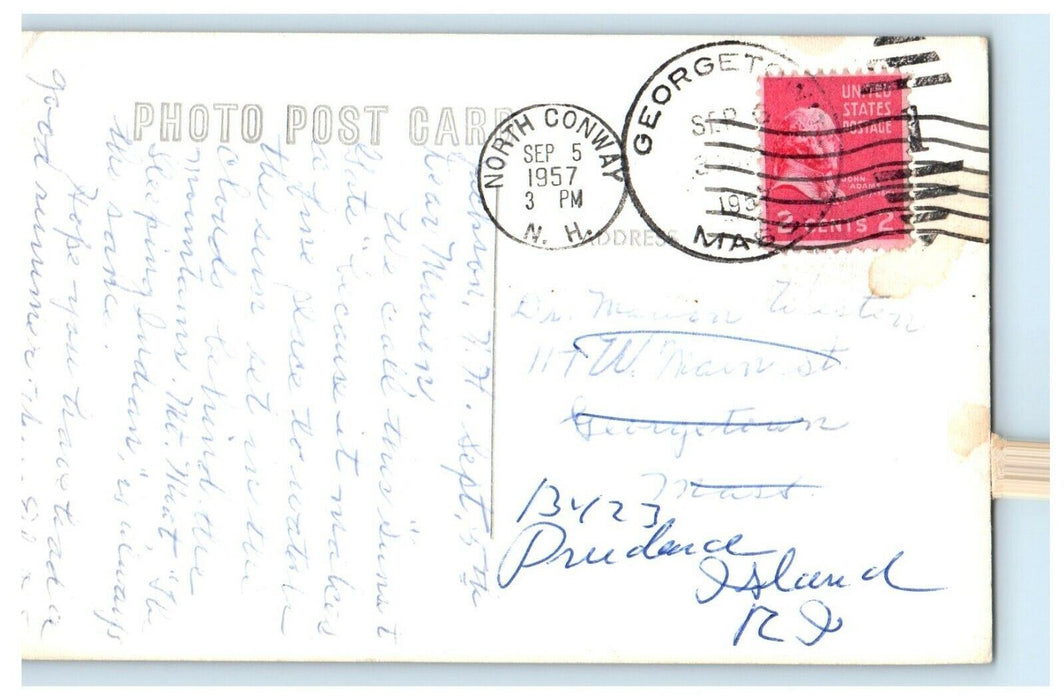 PHOTO POST CARD
Jackson, N.H. Sept. 5th
Dear Marion,
We call this "Sunset
Gate" because it makes
a fine place to watch
the sun set in the
clouds behind the
mountains. Mt. Moat "The
Sleeping Indian," is always
the same.
Hope you have had a
good summer
NORTH CONWAY
SEP 5
1957
3 PM
N. H.
GEORGETOWN
SEP
195
MASS
UNITED
STATES
POSTAGE
JOHN
ADAMS
2 CENTS 2
ADDRESS
Dr. Marion Weston
117 W. Main St.
Georgetown
Mass.
BX 23
Prudence
Island
R I